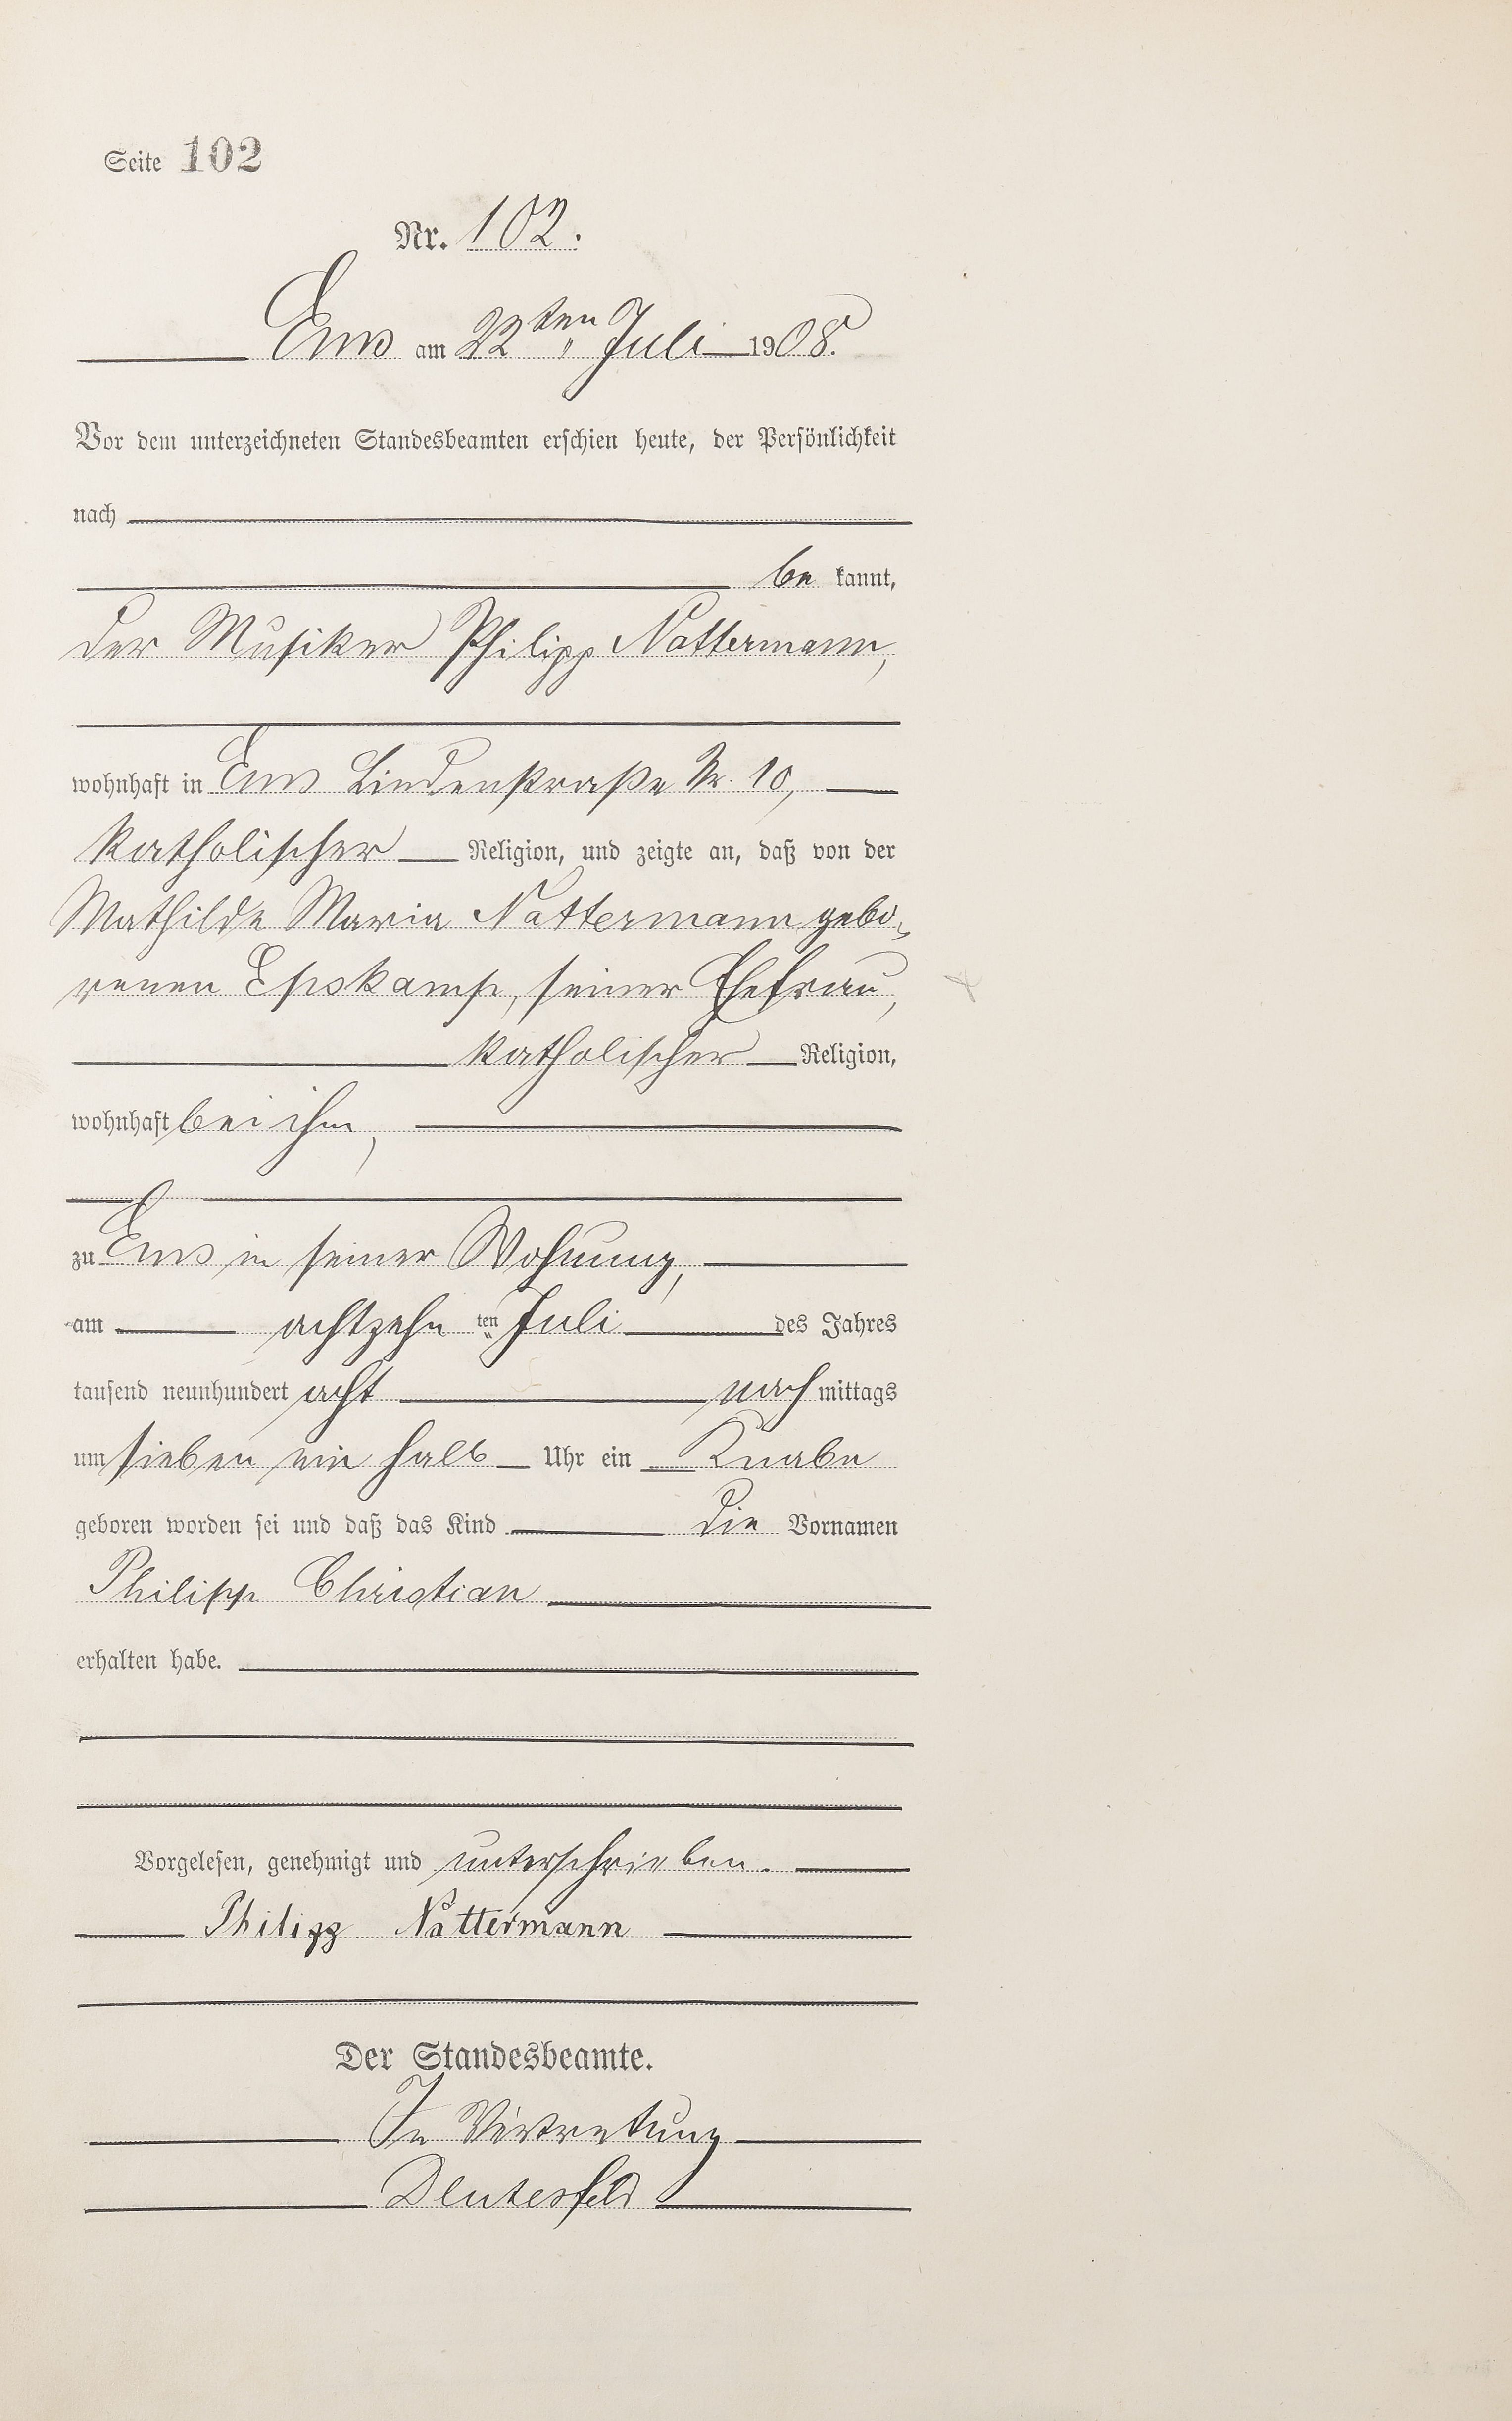 Seite 102
Nr. 102.
Ems am 22ten Juli 1908.
Vor dem unterzeichneten Standesbeamten erschien heute, der Persönlichkeit
nach
be kannt,
der Musiker Philipp Nattermann,
wohnhaft in Ems Lindenstraße Nr. 10,
katholischer Religion, und zeigte an, daß von der
Mathilde Maria Nattermann gebo-
renen Epskamp, seiner Ehefrau,
katholischer Religion,
wohnhaft bei ihm,
zu Ems in seiner Wohnung,
am achtzehn ten Juli des Jahres
tausend neunhundert acht nach mittags
um sieben ein halb Uhr ein Knabe
geboren worden sei und daß das Kind die Vornamen
Philipp Christian
erhalten habe.
Vorgelesen, genehmigt und unterschrieben.
Philipp Nattermann
Der Standesbeamte.
In Vertretung
Deutesfeld